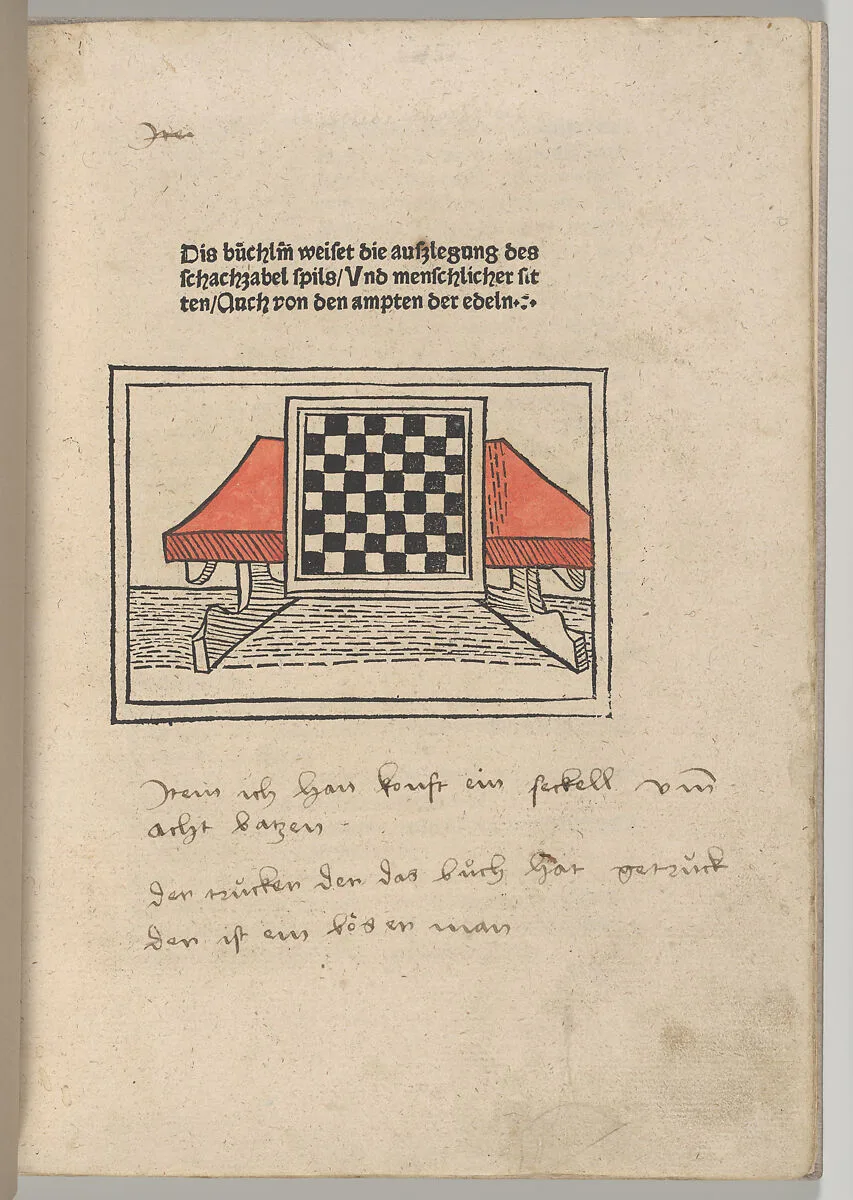 Dis bůchlin̄ weiset die auszlegung des
schachzabel spils/Vnd menschlicher sit
ten/Auch von den ampten der edeln
Item ich han kouft ein seckell vm̄
acht batzen
der trůcker der das bůch hat getruck
der ist ein böser man